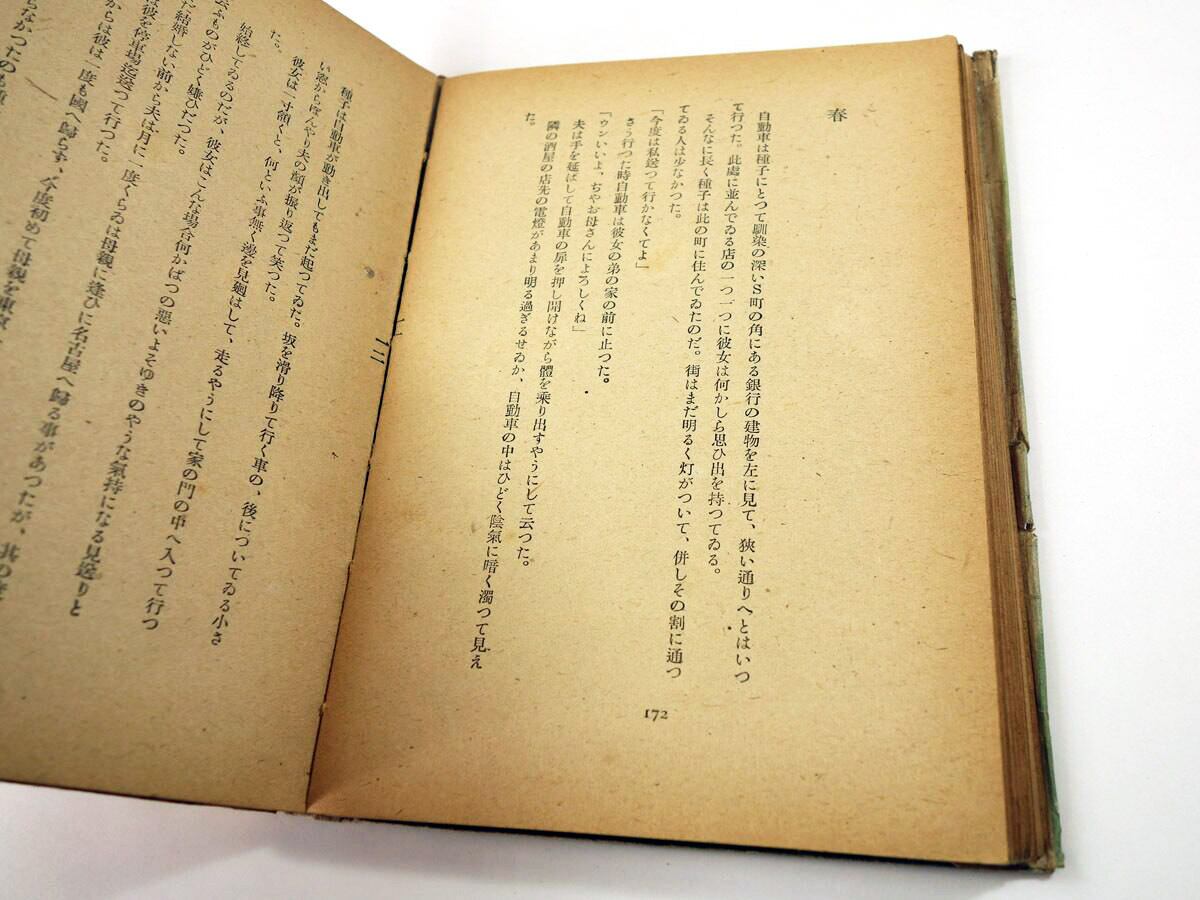 春
自動車は種子にとつて馴染の深いS町の角にある銀行の建物を左に見て、狹い通りへとはいつ
て行つた。此處に並んでゐる店の一つ一つに彼女は何かしら思ひ出を持つてゐる。
そんなに長く種子は此の町に住んでゐたのだ。街はまだ明るく灯がついて、併しその割に通つ
てゐる人は少なかつた。
「今度は私送つて行かなくてよ」
さう行つた時自動車は彼女の弟の家の前に止つた。
「ウンいいよ、ぢやお母さんによろしくね」
夫は手を延ばして自動車の扉を押し開けながら體を乘り出すやうにして云つた。
隣の酒屋の店先の電燈があまり明る過ぎるせゐか、自動車の中はひどく陰氣に暗く濁つて見え
た。
172
種子は自動車が動き出してもまだ起つてゐた。坂を滑り降りて行く車の、後についてゐる小さ
い窓からぼんやり夫の顏が振り返つて笑つた。
彼女は一寸頷くと、何といふ事無く邊を見廻はして、走るやうにして家の門の中へ入つて行つ
た。
始終してゐるのだが、彼女はこんな場合何かばつの惡いよそゆきのやうな氣持になる見送りと
云ふものがひどく嫌ひだつた。
だ結婚しない前から夫は月に一度くらゐは母親に逢ひに名古屋へ歸る事があつたが、其の
は彼を停車場迄送つて行つた。
からは彼は一度も國へ歸らず、今度初めて母親を東京
らなかつたのも